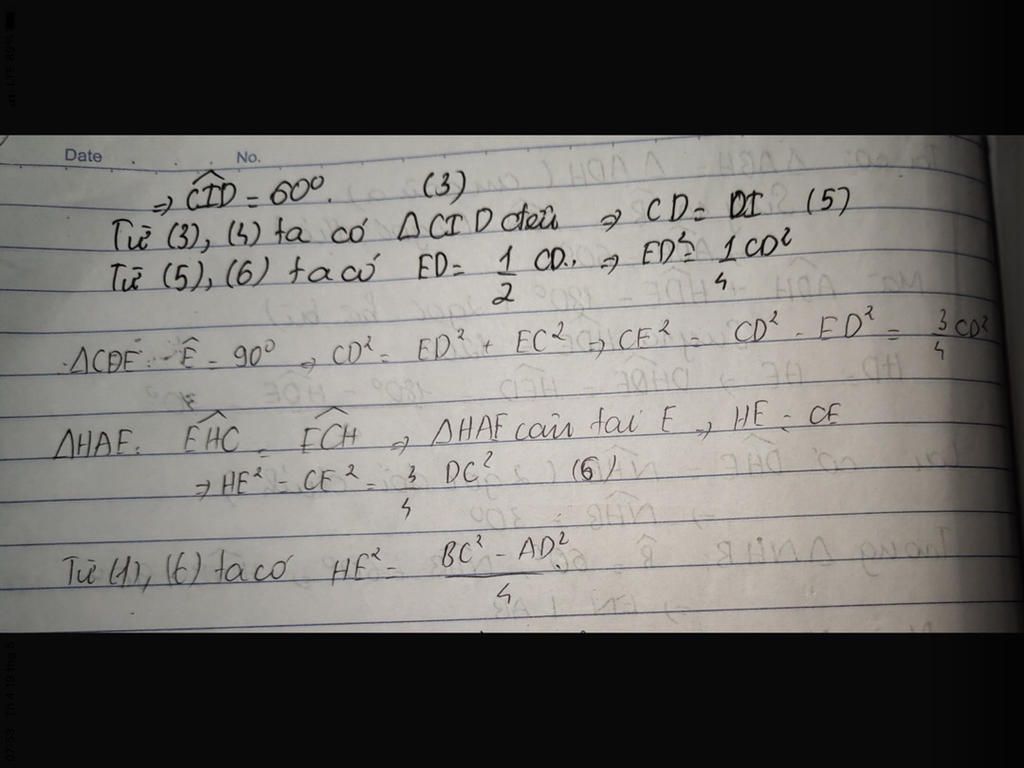 Date . . . No.
⇒ CID = 60⁰. (3)
Từ (3), (4) ta có ΔCID đều ⇒ CD = DI (5)
Từ (5), (6) ta có ED = 1/2 CD. ⇒ ED² = 1/4 CD²
ΔCDE: Ê = 90⁰ ⇒ CD² = ED² + EC² ⇒ CE² = CD² - ED² = 3/4 CD²
ΔHAE: EHC = ECH ⇒ ΔHAE cân tại E ⇒ HE = CE
⇒ HE² = CE² = 3/4 DC² (6)
Từ (1), (6) ta có HE² = BC² - AD² / 4